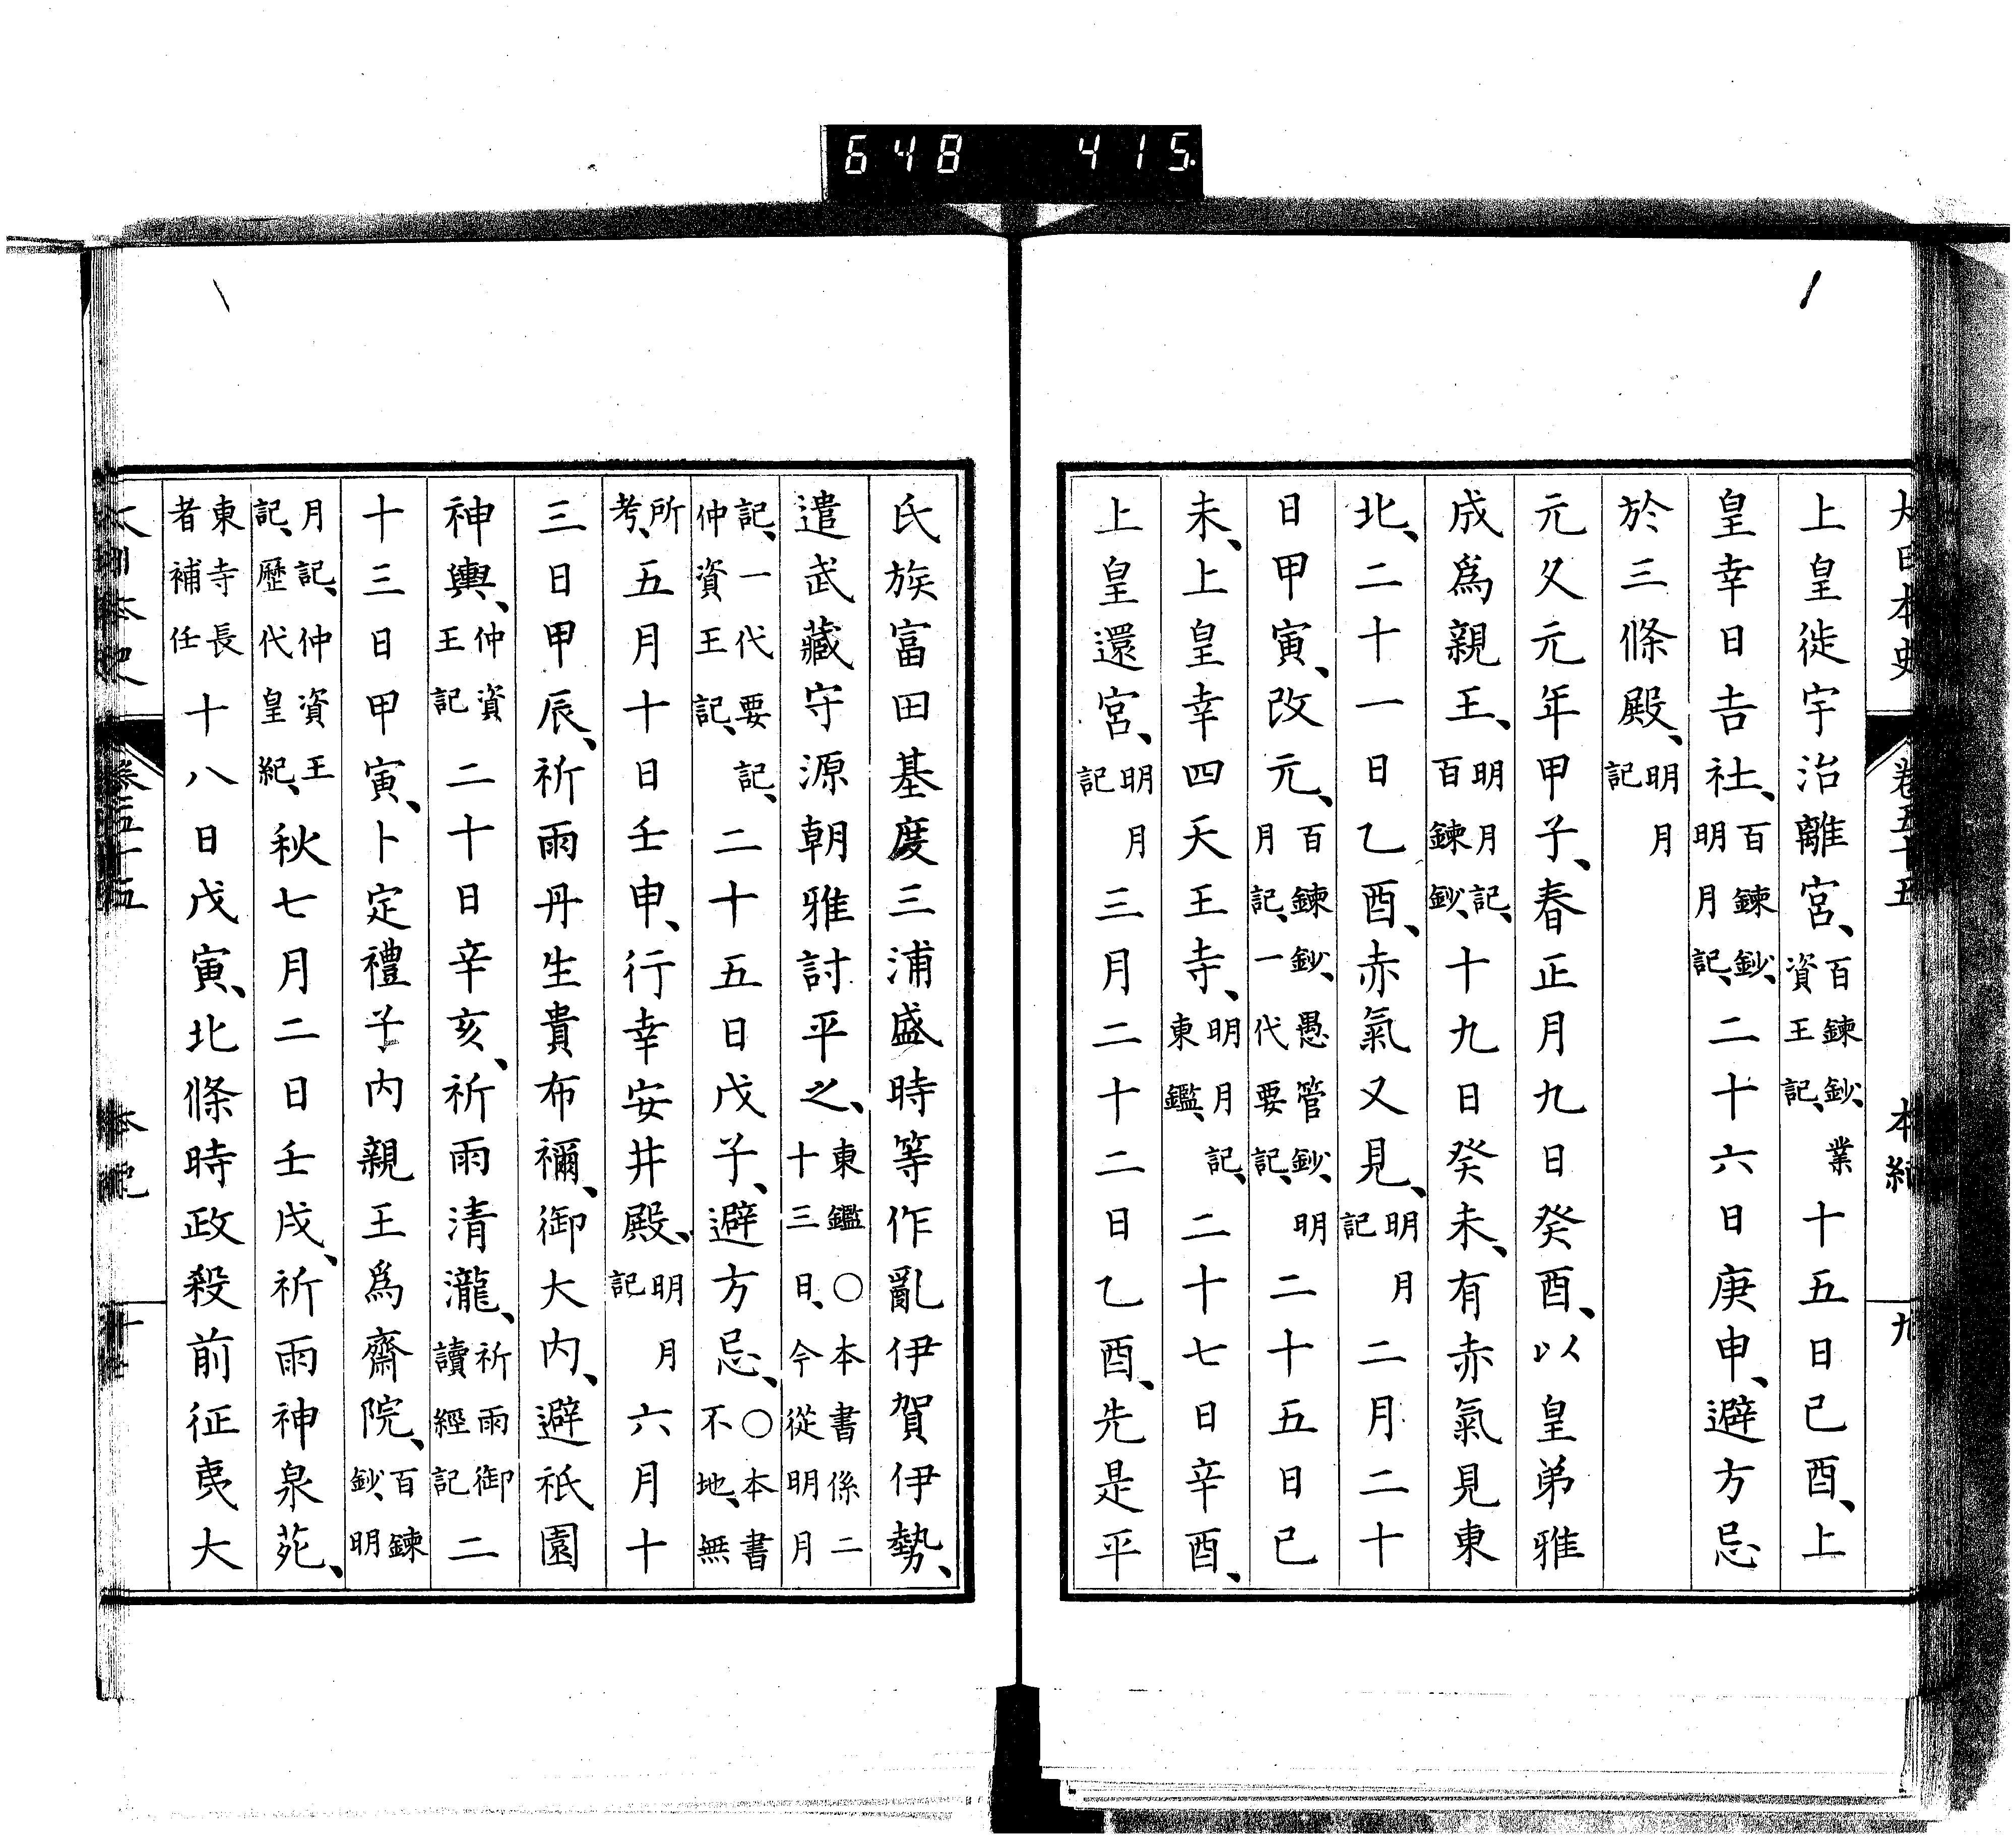 648 415
大日本史 卷五十五 本紀 九
上皇徙宇治離宮、百鍊鈔、業資王記、十五日己酉、上
皇幸日吉社、百鍊鈔、明月記、二十六日庚申、避方忌
於三條殿、明月記
元久元年甲子、春正月九日癸酉、以皇弟雅
成爲親王、明月記、百鍊鈔、十九日癸未、有赤氣見東
北、二十一日乙酉、赤氣又見、明月記二月二十
日甲寅、改元、百鍊鈔、愚管鈔、明月記、一代要記、二十五日己
未、上皇幸四天王寺、明月記、東鑑、二十七日辛酉、
上皇還宮、明月記三月二十二日乙酉、先是平
氏族富田基度三浦盛時等作亂伊賀伊勢、
遣武藏守源朝雅討平之、東鑑○本書係二十三日、今從明月
記、一代要記、仲資王記、二十五日戊子、避方忌、○本書不地、無
所考、五月十日壬申、行幸安井殿、明月記六月十
三日甲辰、祈雨丹生貴布禰、御大内、避祇園
神輿、仲資王記二十日辛亥、祈雨清瀧、祈雨御讀經記二
十三日甲寅、卜定禮子内親王爲齋院、百鍊鈔、明
月記、仲資王記、歷代皇紀、秋七月二日壬戌、祈雨神泉苑、
東寺長者補任十八日戊寅、北條時政殺前征夷大
大日本史 卷五十五 本紀 十